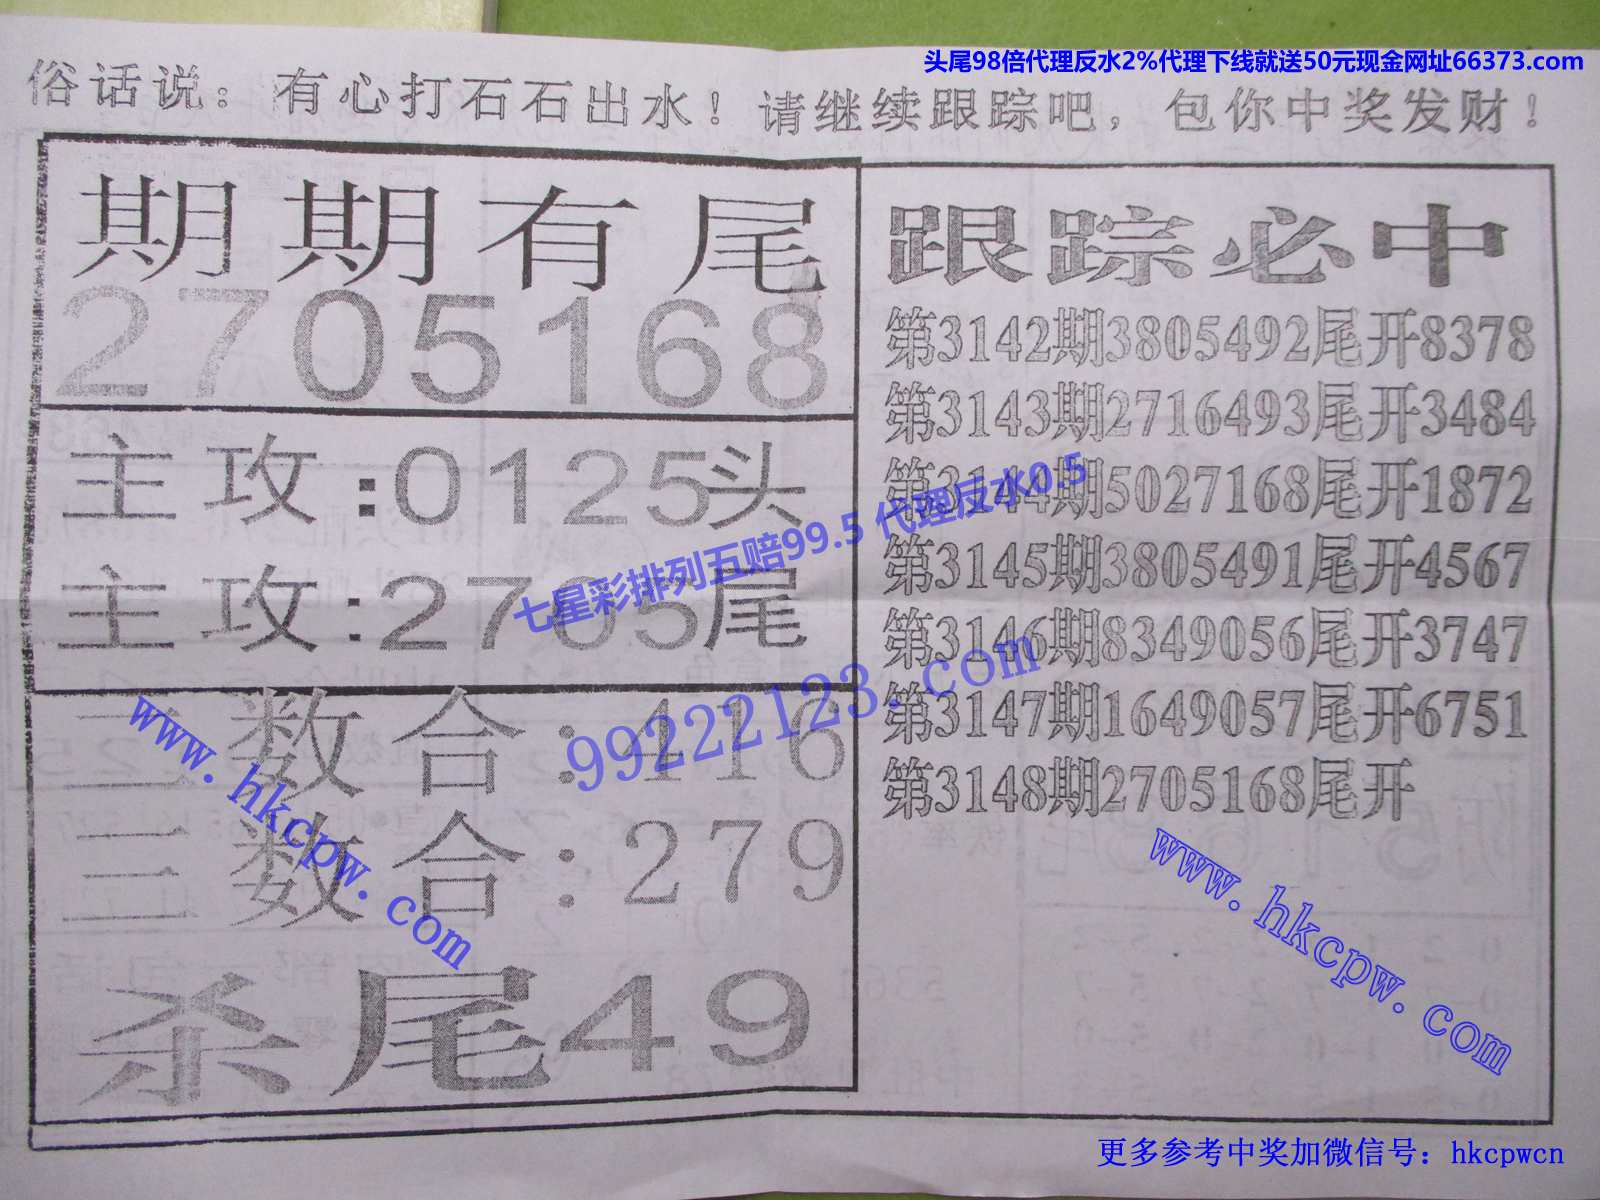 头尾98倍代理反水2%代理下线就送50元现金网址66373.com
俗话说：有心打石石出水！请继续跟踪吧，包你中奖发财！
期期有尾
2705168
主攻:0125头
主攻:2705尾
三数合:416
三数合:279
杀尾49
跟踪必中
第3142期3805492尾开8378
第3143期2716493尾开3484
第3144期5027168尾开1872
第3145期3805491尾开4567
第3146期8349056尾开3747
第3147期1649057尾开6751
第3148期2705168尾开
七星彩排列五赔99.5 代理反水0.5
99222123.com
www.hkcpw.com
www.hkcpw.com
更多参考中奖加微信号：hkcpwcn